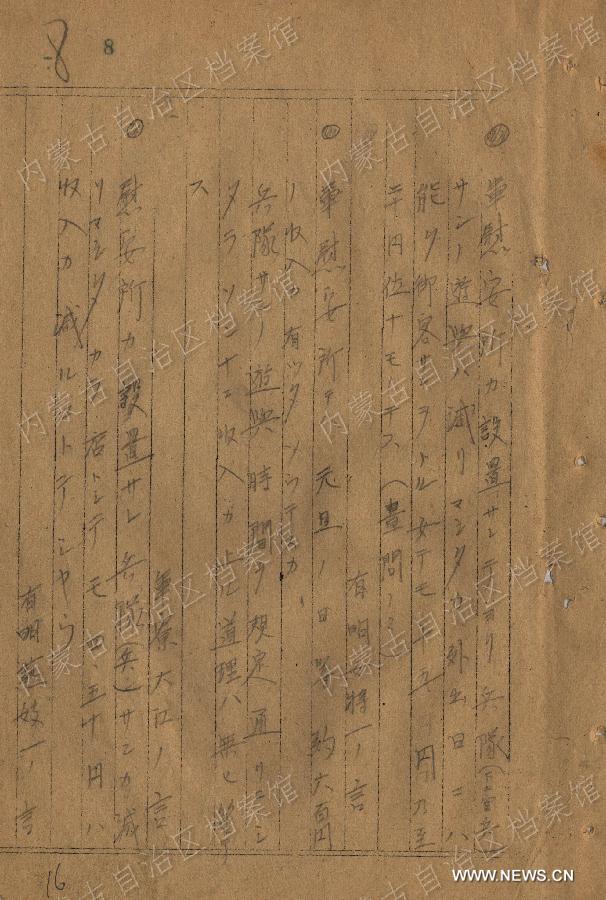 8
8
軍慰安所カ設置サレテヨリ兵隊(
サンノ遊興ハ減リマシタカ外出日ニハ
能ク御客サンヲトル女テモ十五、円乃至
二十円位ナモテス(昼間ノミ)
有明 ノ言
軍慰安所テ元旦ノ日 約六百円
ノ収入カ有ツタソウテスカ、
兵隊サンノ遊興時間カ規定通リニシ
タラソンナニ収入カ上ル道理ハ無ヒ
ス
大江ノ言
慰安所カ設置サレ兵隊(兵)サンカ減
リマシタカラ店トシテモ四、五十円ハ
収入カ減ルトテシヤウ
有明 妓一ノ言
16
内蒙古自治区档案馆
WWW.NEWS.CN